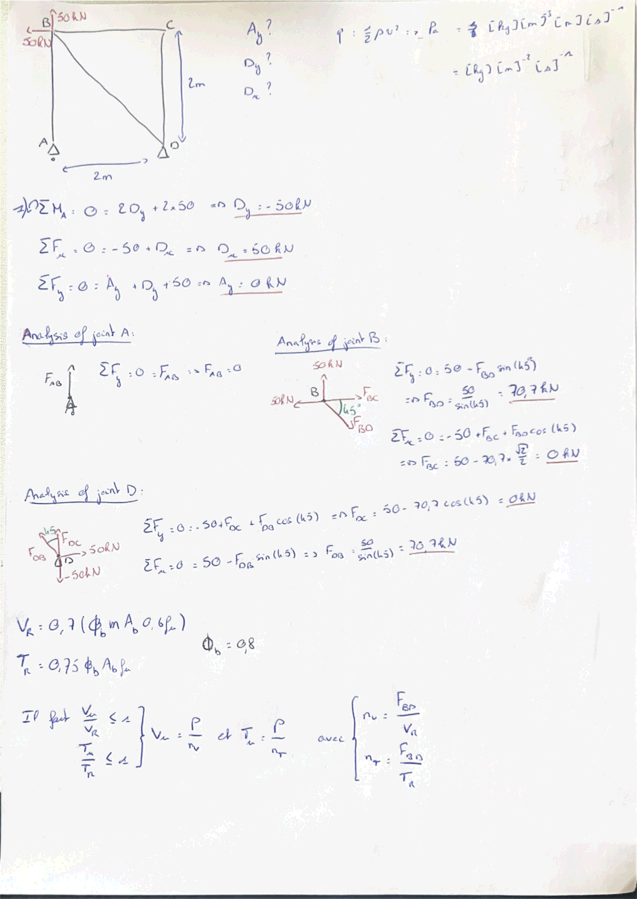 B
50kN
50kN
C
A
D
2m
2m
Ay?
Dy?
Dx?
P = 1/2 ρU² => Pa = 1/2 [kg][m]⁻³[m]²[s]⁻²
= [kg][m]⁻¹[s]⁻²
ΣM_A = 0 = 2Dy + 2×50 => Dy = -50kN
ΣFx = 0 = -50 + Dx => Dx = 50kN
ΣFy = 0 = Ay + Dy + 50 => Ay = 0kN
Analysis of joint A:
F_AB
A
ΣFy = 0 = F_AB => F_AB = 0
Analysis of joint B:
50kN
50kN
B
F_BC
45°
F_BD
ΣFy = 0 = 50 - F_BD sin(45)
=> F_BD = 50/sin(45) = 70,7kN
ΣFx = 0 = -50 + F_BC + F_BD cos(45)
=> F_BC = 50 - 70,7 × √2/2 = 0kN
Analysis of joint D:
45
F_DC
F_DB
D
50kN
-50kN
ΣFy = 0 = -50 + F_DC + F_DB cos(45) => F_DC = 50 - 70,7 cos(45) = 0kN
ΣFx = 0 = 50 - F_DB sin(45) => F_DB = 50/sin(45) = 70,7kN
V_R = 0,7 (ϕ_b m A_b 0,6 fu)
ϕ_b = 0,8
T_R = 0,75 ϕ_b A_b fu
Il faut Vu/V_R ≤ 1
Tu/T_R ≤ 1
Vu = P/n et Tu = P/n_T avec
n_V = F_BD/V_R
n_T = F_BD/T_R